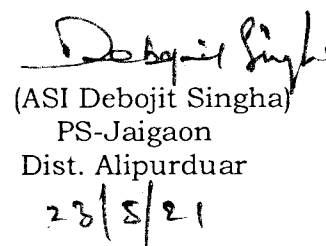 Debojit Singha
(ASI Debojit Singha)
PS-Jaigaon
Dist. Alipurduar
23/5/21